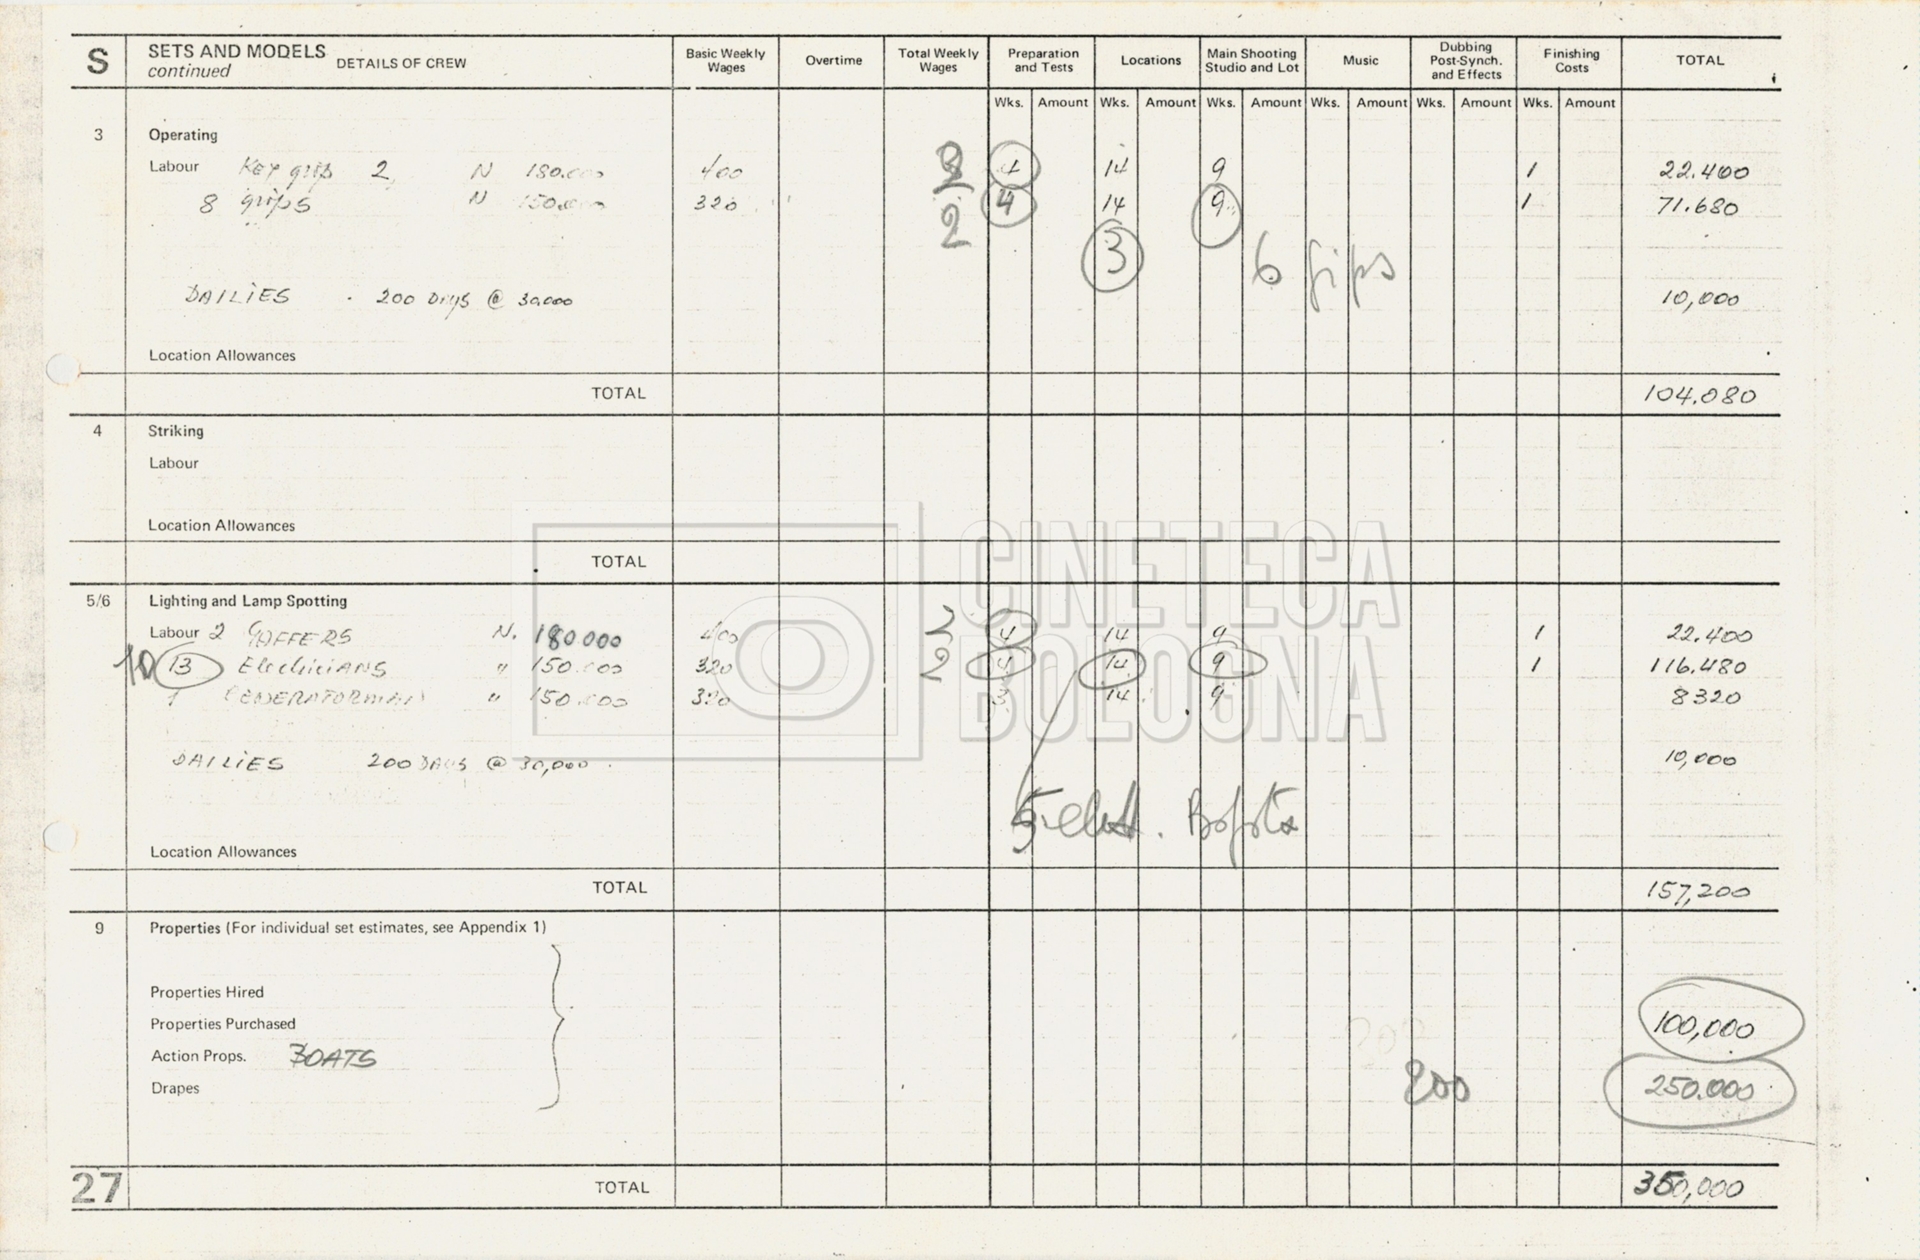 S SETS AND MODELS continued DETAILS OF CREW Basic Weekly Wages Overtime Total Weekly Wages Preparation and Tests Locations Main Shooting Studio and Lot Music Dubbing Post-Synch. and Effects Finishing Costs TOTAL
Wks. Amount Wks. Amount Wks. Amount Wks. Amount Wks. Amount Wks. Amount
3 Operating
Labour Key grip 2 N 180.000 400 4 14 9 1 22.400
8 grips N 150.000 320 2 4 14 9 1 71.680
3 6 grips
DAILIES 200 Days @ 30,000 10,000
Location Allowances
TOTAL 104.080
4 Striking
Labour
Location Allowances
TOTAL
CINETECA
BOLOGNA
5/6 Lighting and Lamp Spotting
Labour 2 GAFFERS N. 180.000 400 4 14 9 1 22.400
10 13 Electricians " 150.000 320 4 14 9 1 116.480
1 GENERATORMAN " 150.000 320 3 14 9 8320
DAILIES 200 DAYS @ 30,000 10,000
5 elect.
Location Allowances
TOTAL 157,200
9 Properties (For individual set estimates, see Appendix 1)
Properties Hired
Properties Purchased 100,000
Action Props. BOATS
Drapes 200 250.000
27 TOTAL 350,000